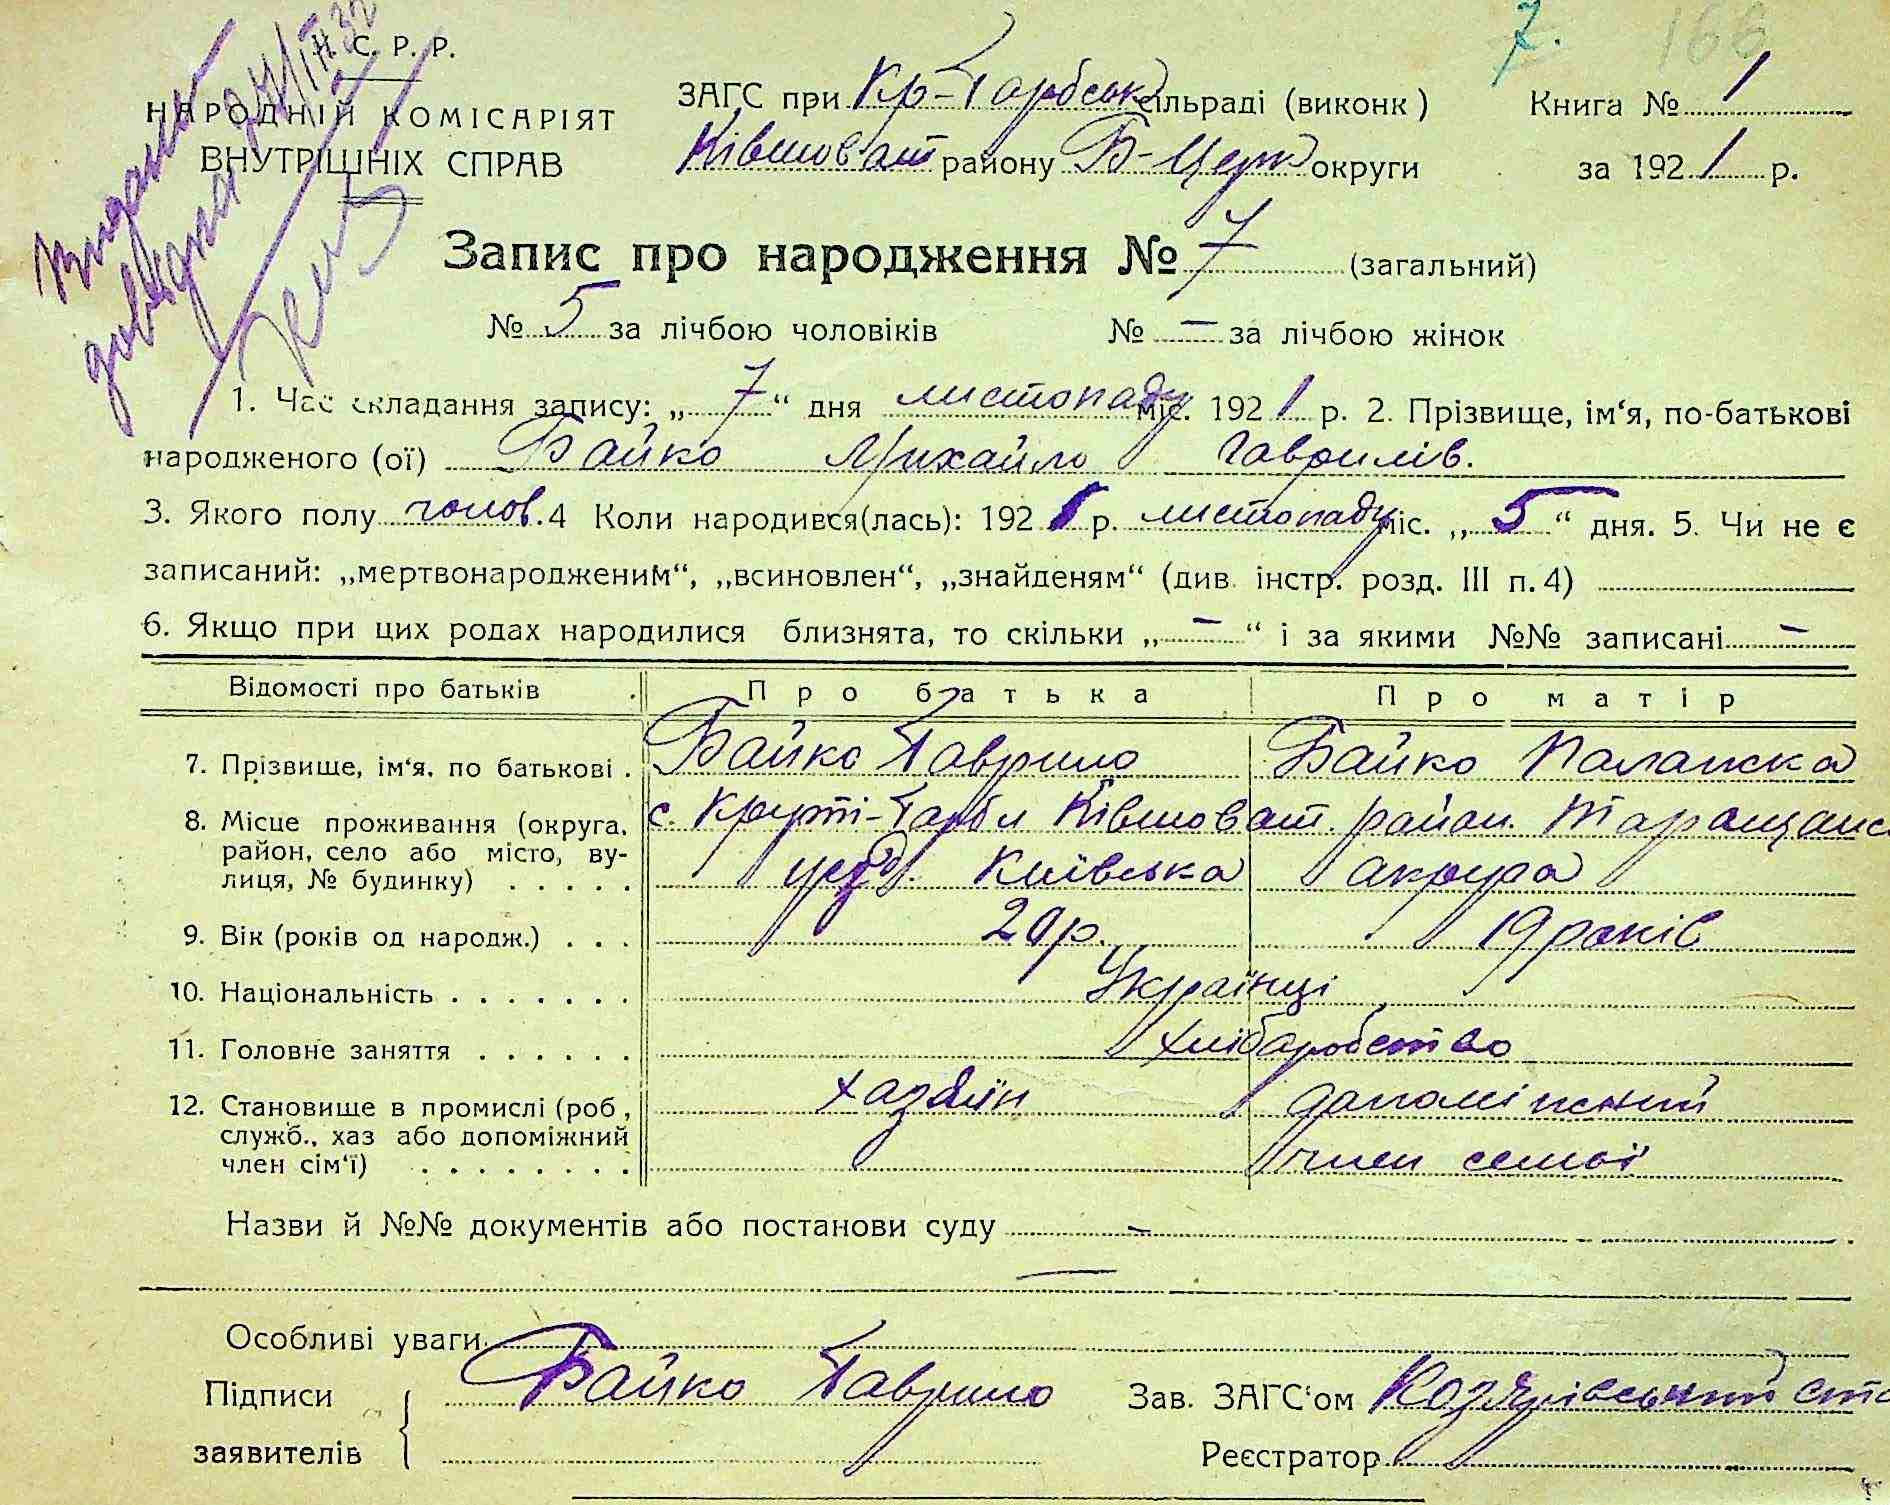 7. 166
Н. С. Р. Р.
НАРОДНІЙ КОМІСАРІЯТ
ВНУТРІШНІХ СПРАВ
Видано
довідка
ЗАГС при Кр-Горбськ сільраді (виконк) Книга № 1
Ківшоват району Б-Церк округи за 1921 р.
Запис про народження № 7 (загальний)
№ 5 за лічбою чоловіків № – за лічбою жінок
1. Час складання запису: „7“ дня листопаду міс. 1921 р. 2. Прізвище, ім‘я, по-батькові
народженого (ої) Байко Михайло Гаврилів.
3. Якого полу чолов. 4 Коли народився(лась): 1921 р. листопаду міс. „5“ дня. 5. Чи не є
записаний: „мертвонародженим“, „всиновлен“, „знайденям“ (див. інстр. розд. III п. 4)
6. Якщо при цих родах народилися близнята, то скільки „–“ і за якими №№ записані –
Відомості про батьків Про батька Про матір
7. Прізвище, ім‘я, по батькові . Байко Гаврило Байко Палажка
8. Місце проживання (округа, район, село або місто, вулиця, № будинку) . . . . . с. Круті-Горби Ківшоват. район. Таращанс
Київська округа
9. Вік (років од народж.) . . . 20 р. 19 років
10. Національність . . . . . . . Українці
11. Головне заняття . . . . . . хліборобство
12. Становище в промислі (роб., служб., хаз або допоміжний член сім‘ї) . . . . . . . . хазяїн допоміжний
член семьї
Назви й №№ документів або постанови суду –
Особливі уваги
Підписи Байко Гаврило Зав. ЗАГС‘ом
заявителів Реєстратор